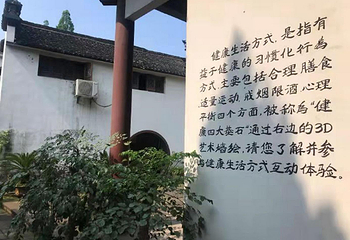 健康生活方式,是指有
益于健康的习惯化行为
方式,主要包括合理膳食
、适量运动、戒烟限酒、心理
平衡四个方面,被称为“健
康四大基石”通过右边的3D
艺术墙绘,请您了解并参
与健康生活方式互动体验。